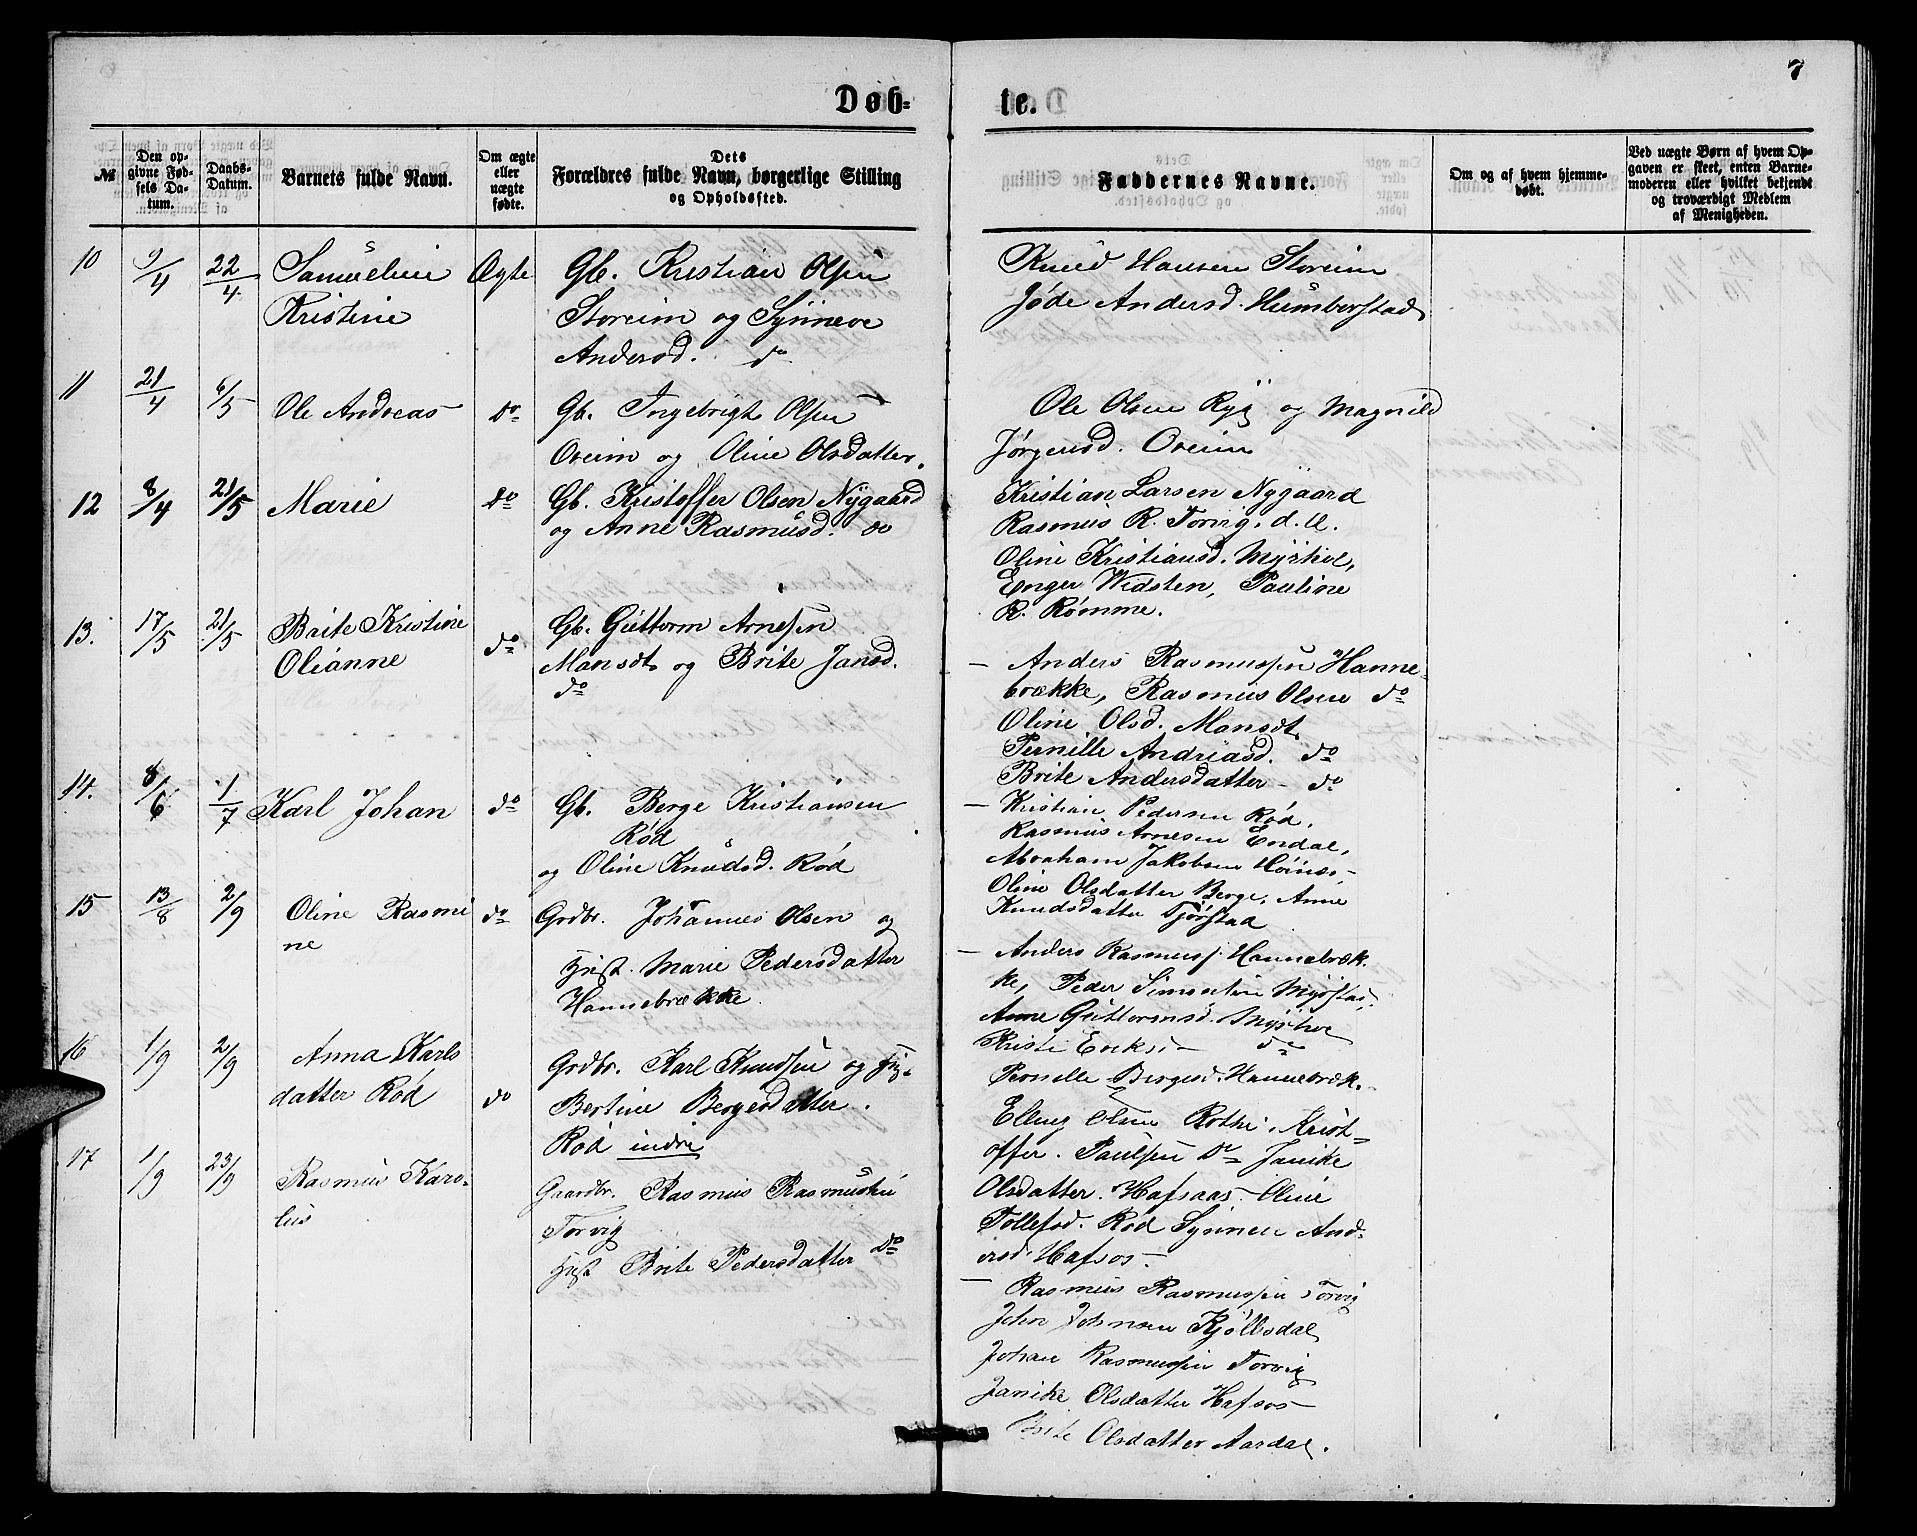 7
Døb-
te.
№
Den op-
givne Fød-
sels Da-
tum.
Daabs-
Datum.
Barnets fulde Navn.
Om ægte
eller
uægte
fødte.
Dets
Forældres fulde Navn, borgerlige Stilling
og Opholdssted.
Faddernes Navne.
Om og af hvem hjemme-
døbt.
Ved uægte Børn af hvem Op-
gaven er skeet, enten Barne-
moderen eller hvilket bekjendt
og troværdigt Medlem
af Menigheden.
10 9/4 22/4 Samueline Ægte Gb. Kristian Olsen
Kristine Storeim og Synneve
Andersd. do
Knud Hansen Storeim
Jøde Andersd. Humborstad
11 21/4 6/5 Ole Andreas do Gb. Ingebrigt Olsen
Oreim og Oline Olsdatter.
Ole Olsen Ryg og Magnild
Jørgensd. Oreim
12 8/4 21/5 Marie do Gb. Kristoffer Olsen Nygaard
og Anne Rasmusd. do
Kristian Larsen Nygaard
Rasmus R. Torvig. d. U.
Oline Kristiansd. Myrhol,
Enger Widsten, Pauline
R. Rømme.
13. 17/5 21/5 Brite Kristine do Gb. Guttorm Arnesen
Olianne Mansdt og Brite Jansd.
do
— Anders Rasmussen Hanne-
brække, Rasmus Olsen do
Oline Olsd. Mansdt.
Pernille Andreasd. do
Brite Andersdatter — do
14. 8/6 1/7 Karl Johan do Gb. Berge Kristiansen
Rød
og Oline Knudsd. Rød
— Kristian Pedersen Rød.
Rasmus Arnesen Endal,
Abraham Jakobsen Höines —
Oline Olsdatter Berge, Anne
Knudsdatter Tjørstad
15 13/8 2/9 Oline Rasmi do Grdbr. Johannes Olsen og
ne Hust. Marie Pedersdatter
Hannebrække.
— Anders Rasmuss. Hannebræk.
ke, Peder Simonsen Myrstad,
Anne Guttormsd. Myrhol
Kristi Eriks. — do
Pernille Bergesd. Hannebræk.
16 1/9 2/9 Anna Karls do Grdbr. Karl Knudsen og Hu.
datter Rød Bertine Bergesdatter.
Rød indre
Elling Olsen Rothi, Krist-
offer. Paulsen Do Janike
Olsdatter. Hafsaas. Oline
Tollefsd. Rød Synneve And-
ersd. Hafsos —
17 1/9 23/9 Rasmus Karo- Gaardbr. Rasmus Rasmussen
lus Torvig
Hust Brite Pedersdatter do
— Rasmus Rasmussen Torvig
John Johnsen Kjöllsdal
Johan Rasmussen Torvig
Janike Olsdatter Hafsos
Brite Olsdatter Aardal.